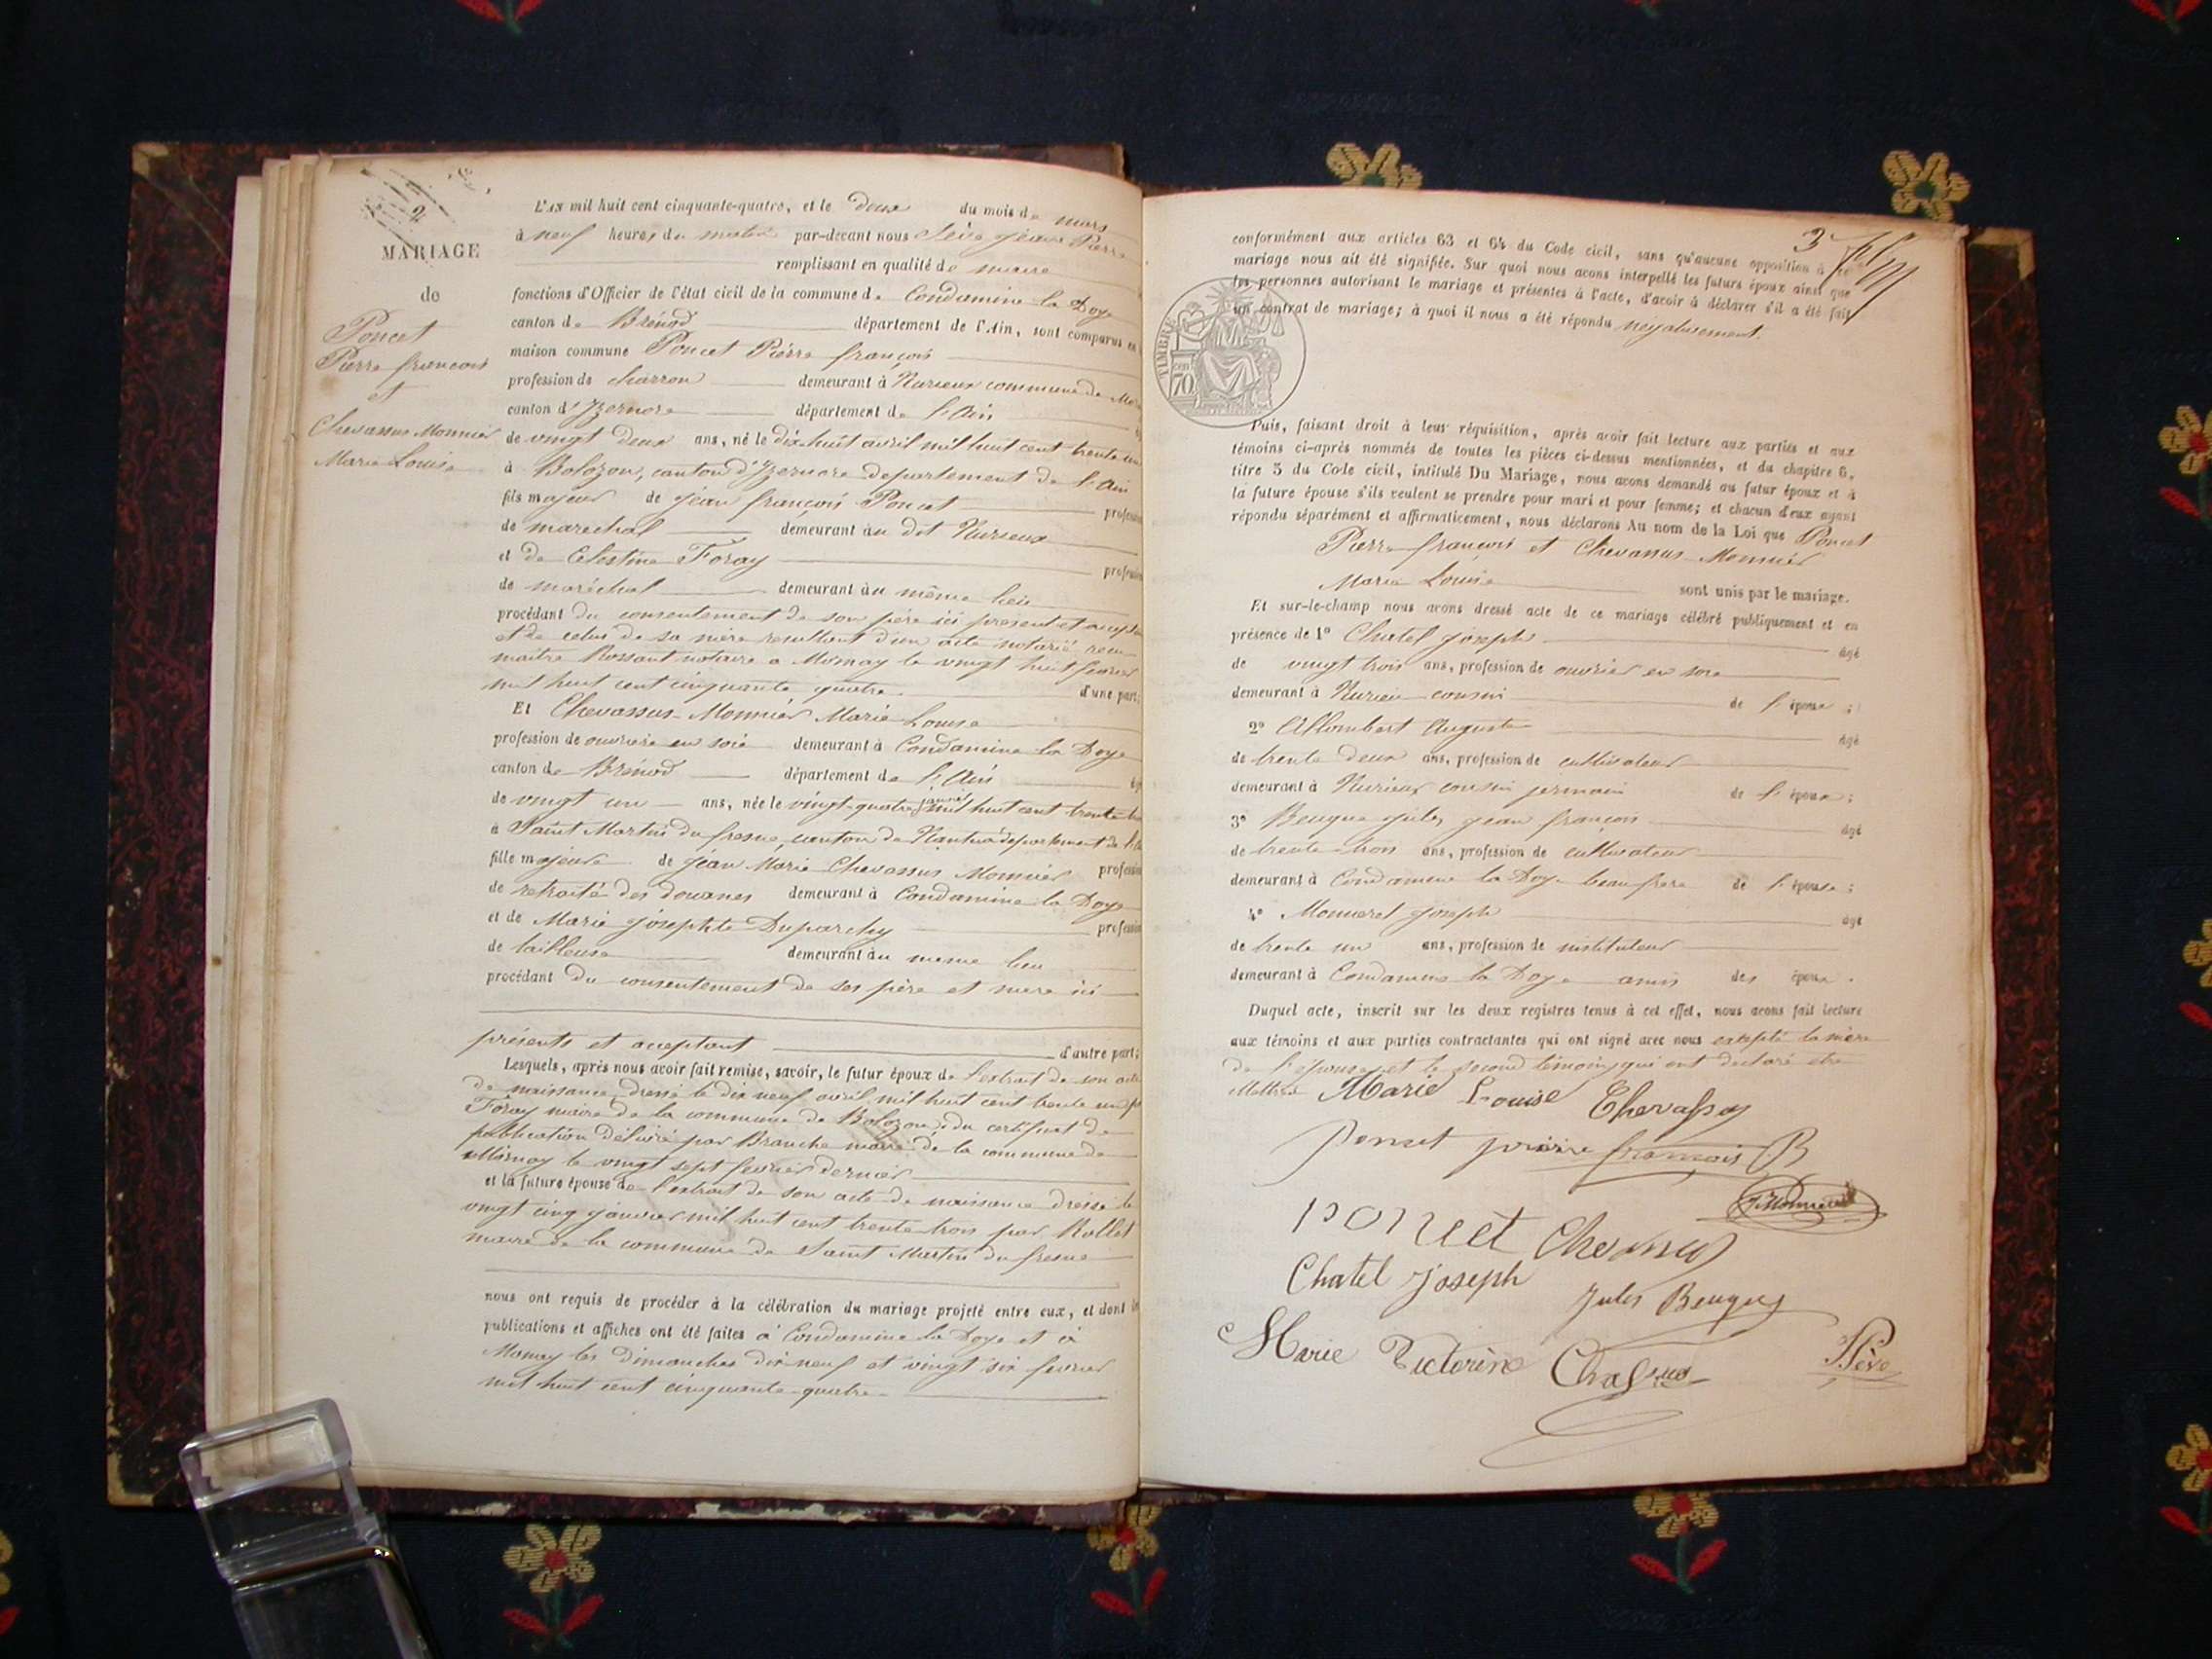 2
MARIAGE
de
Poncet
Pierre françois
et
Chevassus Monnier
Marie Louise
L'AN mil huit cent cinquante-quatre, et le deux du mois de mars
à neuf heures du matin par-devant nous Sève Jean Pierre
remplissant en qualité de maire
fonctions d'Officier de l'état civil de la commune de Condamine la Doye
canton de Brénod département de l'Ain, sont comparus en
maison commune Poncet Pierre françois
profession de charron demeurant à Nurieux commune de
canton d'Izernore département de l'Ain
de vingt deux ans, né le dix huit avril mil huit cent trente un
à Bolozon, canton d'Izernore département de l'Ain
fils majeur de Jean françois Poncet profession
de marechal demeurant au dit Nurieux
et de Celestine Foray profession
de maréchal demeurant au même lieu
procédant du consentement de son père ici présent et
et de celui de sa mère resultant d'un acte notarié recu
maitre Rossant notaire a Mornay le vingt huit fevrier
mil huit cent cinquante quatre d'une part;
Et Chevassus-Monnier Marie Louise
profession de ouvrière en soie demeurant à Condamine la Doye
canton de Brénod département de l'Ain
de vingt un ans, née le vingt-quatre janvier mil huit cent trente
à Saint Martin du fresne, canton de Nantua département de l'
fille majeure de Jean Marie Chevassus Monnier profession
de retraité des douanes demeurant à Condamine la Doye
et de Marie Josephte Duparchy profession
de tailleuse demeurant au meme lieu
procédant du consentement de ses père et mere ici
présents et acceptant d'autre part;
Lesquels, après nous avoir fait remise, savoir, le futur époux de l'extrait de son acte
de naissance dressé le dix neuf avril mil huit cent trente un
Foray maire de la commune de Bolozon, du certificat de
publication délivré par Branche maire de la commune de
Mornay le vingt sept fevrier dernier
et la future épouse de l'extrait de son acte de naissance dressé le
vingt cinq janvier mil huit cent trente trois par Rollet
maire de la commune de Saint Martin du fresne
nous ont requis de procéder à la célébration du mariage projeté entre eux, et dont les
publications et affiches ont été faites à Condamine la Doye et à
Mornay les dimanches dix-neuf et vingt six fevrier
mil huit cent cinquante-quatre
3
conformément aux articles 63 et 64 du Code civil, sans qu'aucune opposition à ce
mariage nous ait été signifiée. Sur quoi nous avons interpellé les futurs époux ainsi que
les personnes autorisant le mariage et présentes à l'acte, d'avoir à déclarer s'il a été fait
un contrat de mariage; à quoi il nous a été répondu négativement.
TIMBRE
70
Puis, faisant droit à leur réquisition, après avoir fait lecture aux parties et aux
témoins ci-après nommés de toutes les pièces ci-dessus mentionnées, et du chapitre 6,
titre 5 du Code civil, intitulé Du Mariage, nous avons demandé au futur époux et à
la future épouse s'ils veulent se prendre pour mari et pour femme; et chacun d'eux ayant
répondu séparément et affirmativement, nous déclarons Au nom de la Loi que Poncet
Pierre françois et Chevassus Monnier
Marie Louise sont unis par le mariage.
Et sur-le-champ nous avons dressé acte de ce mariage célébré publiquement et en
présence de 1° Chatel Joseph âgé
de vingt trois ans, profession de ouvrier en soie
demeurant à Nurieu cousin de l'époux ;
2° Allombert Auguste âgé
de trente deux ans, profession de cultivateur
demeurant à Nurieux cousin germain de l'époux ;
3° Beugue Jules Jean françois âgé
de trente-trois ans, profession de cultivateur
demeurant à Condamine la Doye beau frère de l'épouse ;
4° Monneret Joseph âgé
de trente un ans, profession de instituteur
demeurant à Condamine la Doye amis des époux .
Duquel acte, inscrit sur les deux registres tenus à cet effet, nous avons fait lecture
aux témoins et aux parties contractantes qui ont signé avec nous excepté la mère
de l'épouse et le second témoin qui ont declaré etre
illettrés Marie Louise Chevassus
Poncet pierre francois
poncet Chevassus
Chatel joseph
Jules Beugue
Marie Victorine
Sève